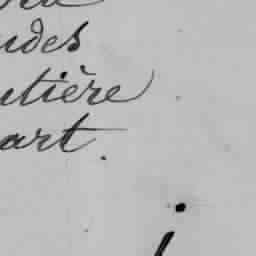 udes
utière
art.